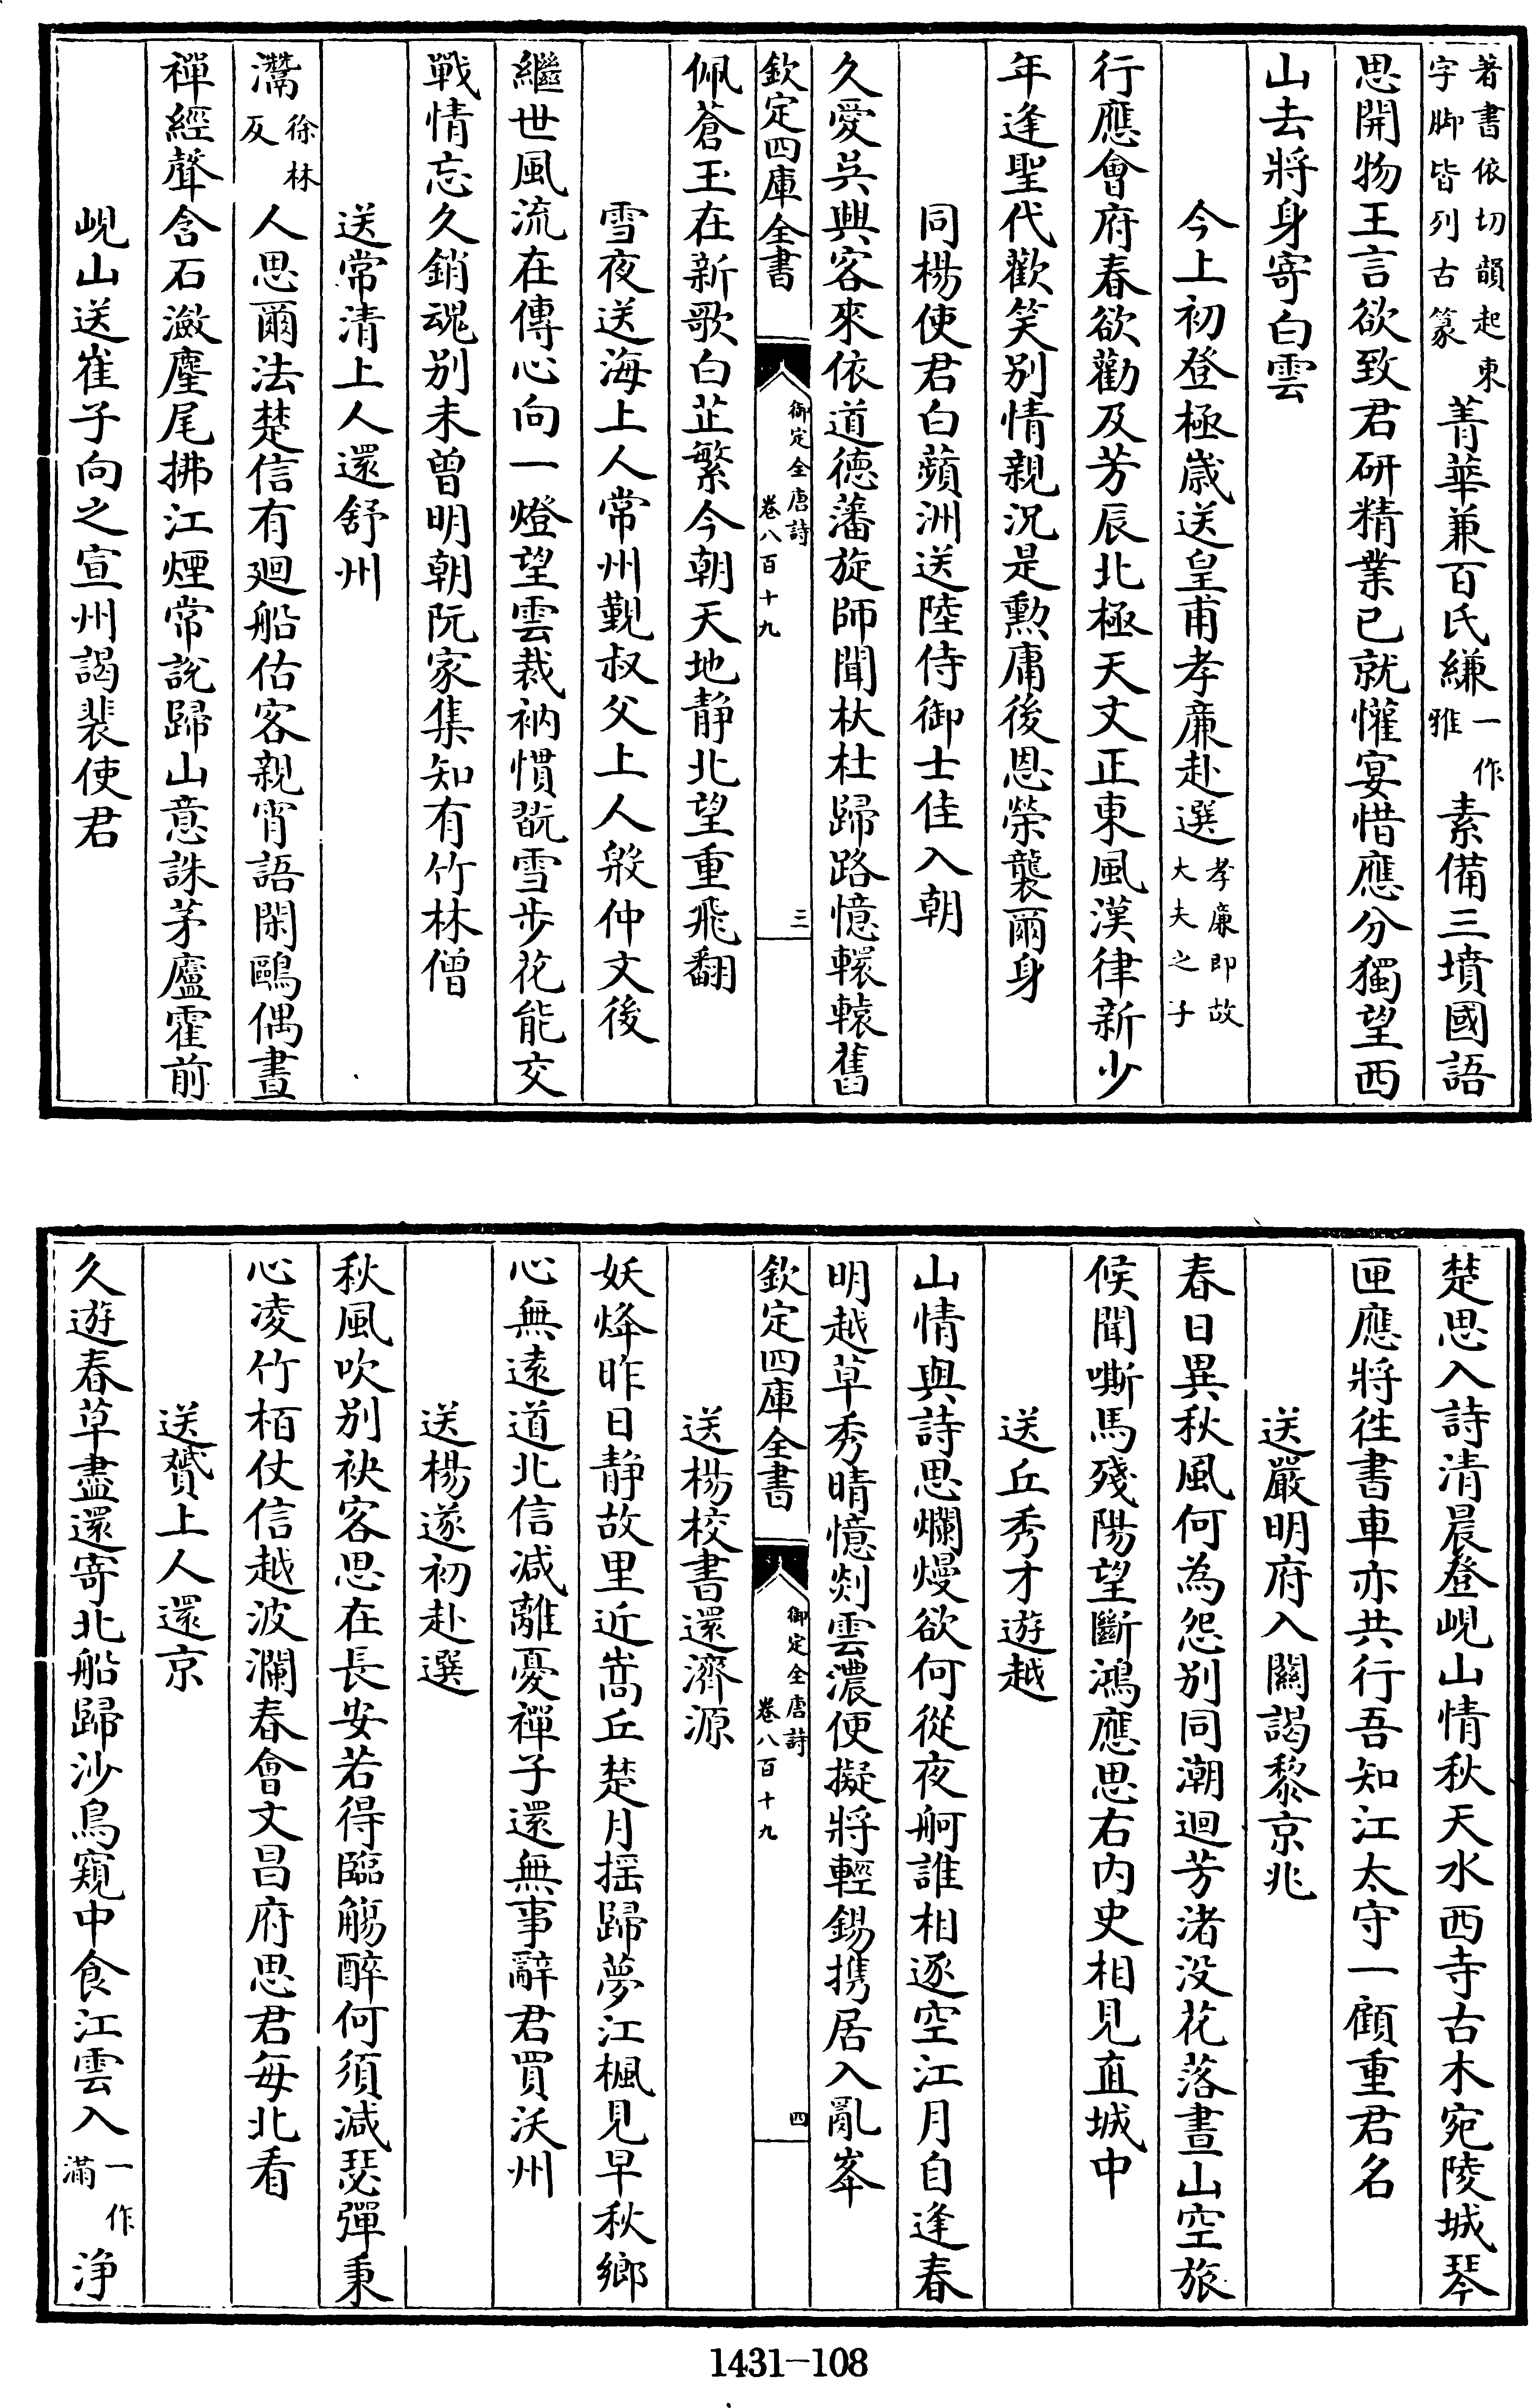 著書依切韻起東字脚皆列古篆菁華兼百氏縑一作雅素備三墳國語
思開物王言欲致君研精業已就懽宴惜應分獨望西
山去將身寄白雲
今上初登極歲送皇甫孝廉赴選孝廉即故大夫之子
行應會府春欲勸及芳辰北極天文正東風漢律新少
年逢聖代歡笑別情親況是勲庸後恩榮襲爾身
同楊使君白蘋洲送陸侍御士佳入朝
久愛吳興客來依道德藩旋師聞杕杜歸路憶轘轅舊
欽定四庫全書
御定全唐詩
卷八百十九
三
佩蒼玉在新歌白芷繁今朝天地靜北望重飛翻
雪夜送海上人常州覲叔父上人殷仲文後
繼世風流在傳心向一燈望雲裁衲慣翫雪步花能交
戰情忘久銷魂別未曾明朝阮家集知有竹林僧
送常清上人還舒州
灊徐林反人思爾法楚信有廻船估客親宵語閑鷗偶晝
禪經聲含石潋麈尾拂江煙常說歸山意誅茅廬霍前
峴山送崔子向之宣州謁裴使君
楚思入詩清晨登峴山情秋天水西寺古木宛陵城琴
匣應將往書車亦共行吾知江太守一顧重君名
送嚴明府入關謁黎京兆
春日異秋風何為怨別同潮迴芳渚沒花落晝山空旅
候聞嘶馬殘陽望斷鴻應思右內史相見直城中
送丘秀才遊越
山情與詩思爛熳欲何從夜舸誰相逐空江月自逢春
明越草秀晴憶剡雲濃便擬將輕錫携居入亂峯
欽定四庫全書
御定全唐詩
卷八百十九
四
送楊校書還濟源
妖烽昨日靜故里近嵩丘楚月揺歸夢江楓見早秋鄉
心無遠道北信減離憂禪子還無事辭君買沃州
送楊遂初赴選
秋風吹別袂客思在長安若得臨觴醉何須減瑟彈秉
心凌竹栢仗信越波瀾春會文昌府思君每北看
送贇上人還京
久遊春草盡還寄北船歸沙鳥窺中食江雲入一作滿浄
1431-108